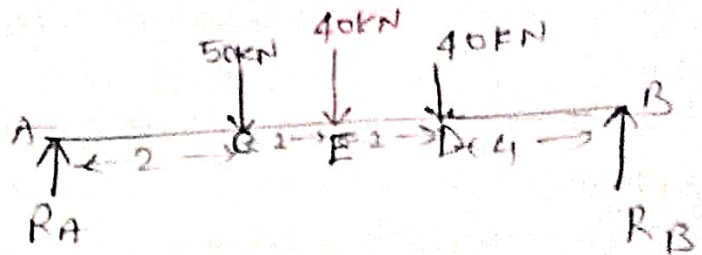 40KN
50KN
40KN
A
2
C
2
E
2
D
4
B
RA
RB